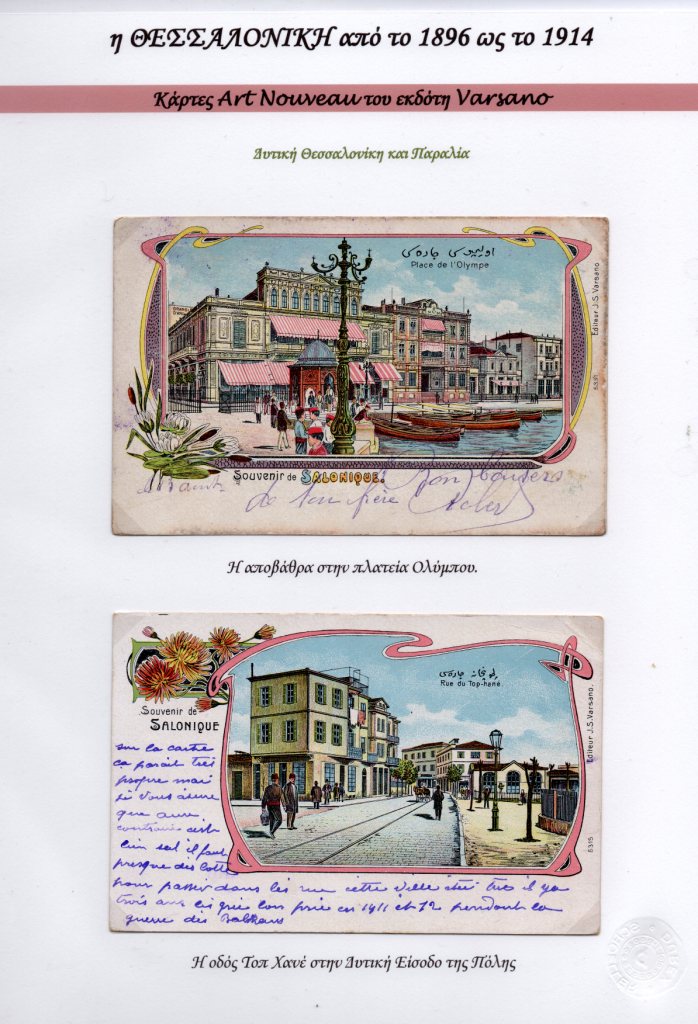 η ΘΕΣΣΑΛΟΝΙΚΗ από το 1896 ως το 1914
Κάρτες Art Nouveau του εκδότη Varsano
Δυτική Θεσσαλονίκη και Παραλία
Place de l'Olympe
Editeur J.S. Varsano
Souvenir de SALONIQUE.
Bon
de ton frère
Η αποβάθρα στην πλατεία Ολύμπου.
Rue du Top-hané
Editeur J.S. Varsano.
5315
Souvenir de
SALONIQUE
sur la cartre
ca parait très
propre mai
je vous assure
que au
contraire cest
bien sal il faut
presque des botte
pour passer dans les rue cette ville été
trois ans les grec lon prie en 1911 et 12 pendant la
guerre des Balkans
Η οδός Τοπ Χανέ στην Δυτική Είσοδο της Πόλης